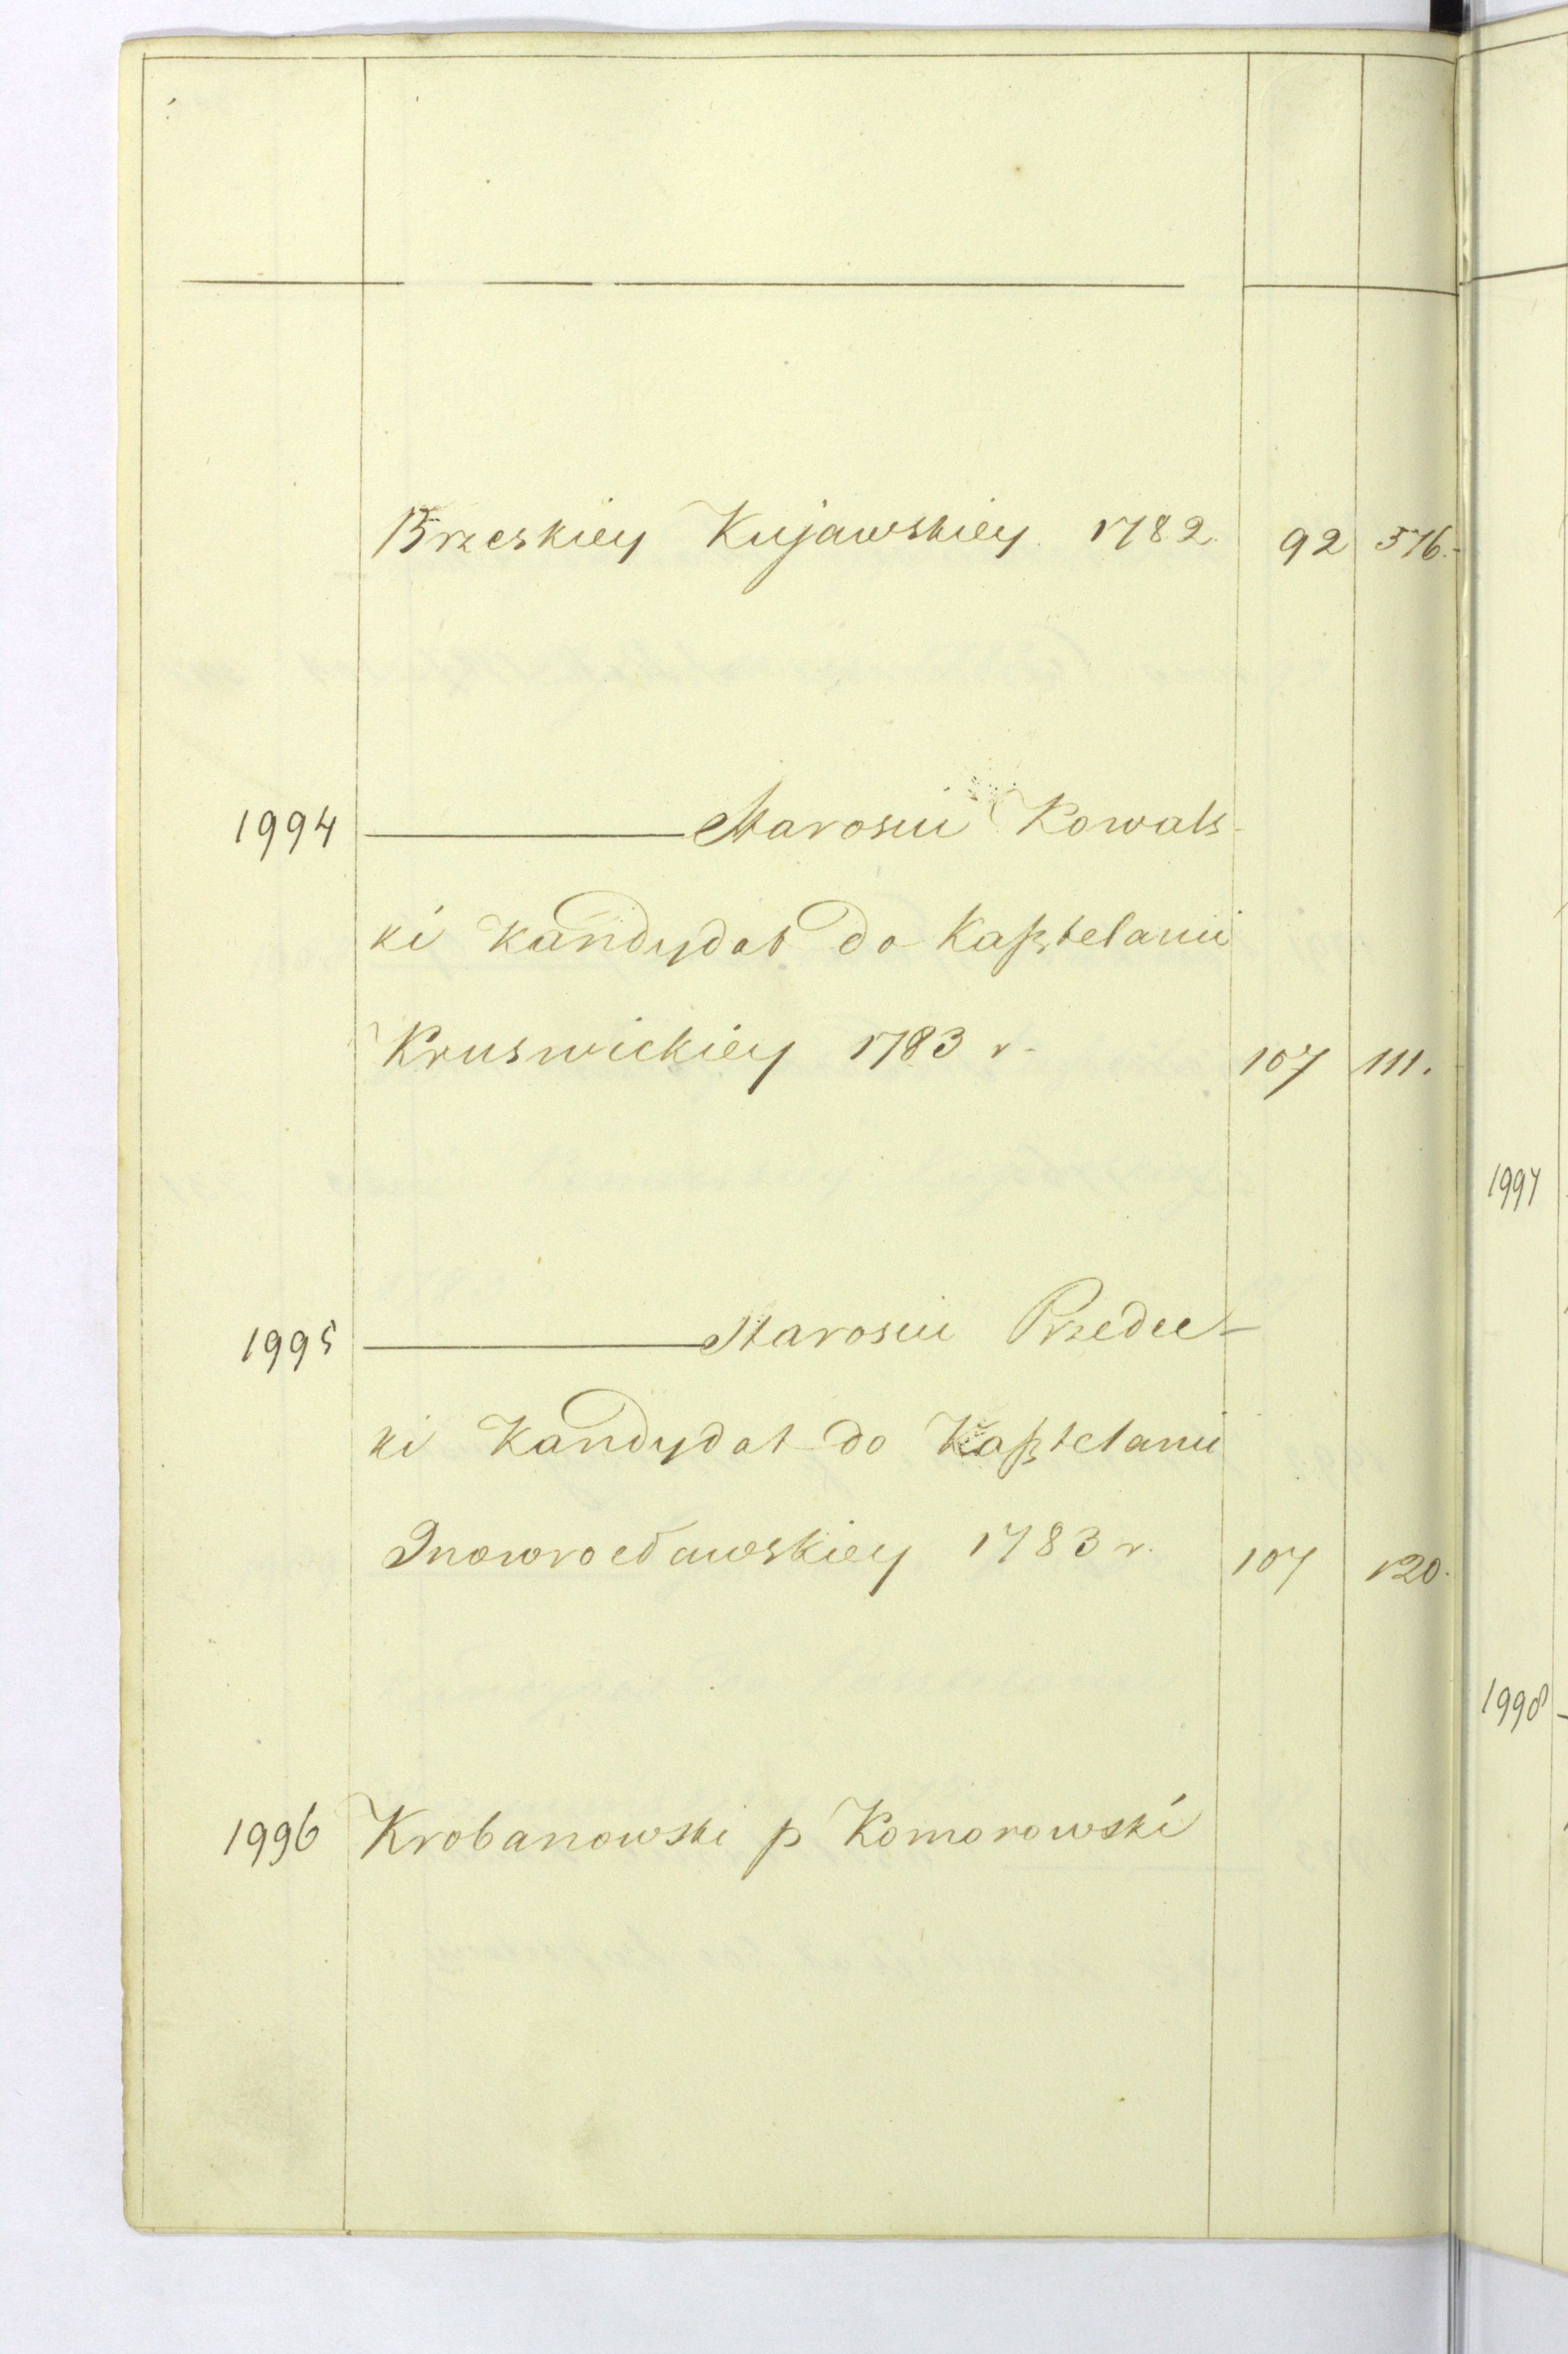 Brzeskiey Kujawskiey 1782. 92 576.-
1994 ——— Starosci Kowals-
ki Kandydat do Kaßtelanii
Kruswickiey 1783 r. 107 111.
1995 ——— Starosci Przedec-
ki Kandydat do Kaßtelanii
Inowrocławskiey 1783 r. 107 120.
1996 Krobanowski p Komorowski
1997
1998